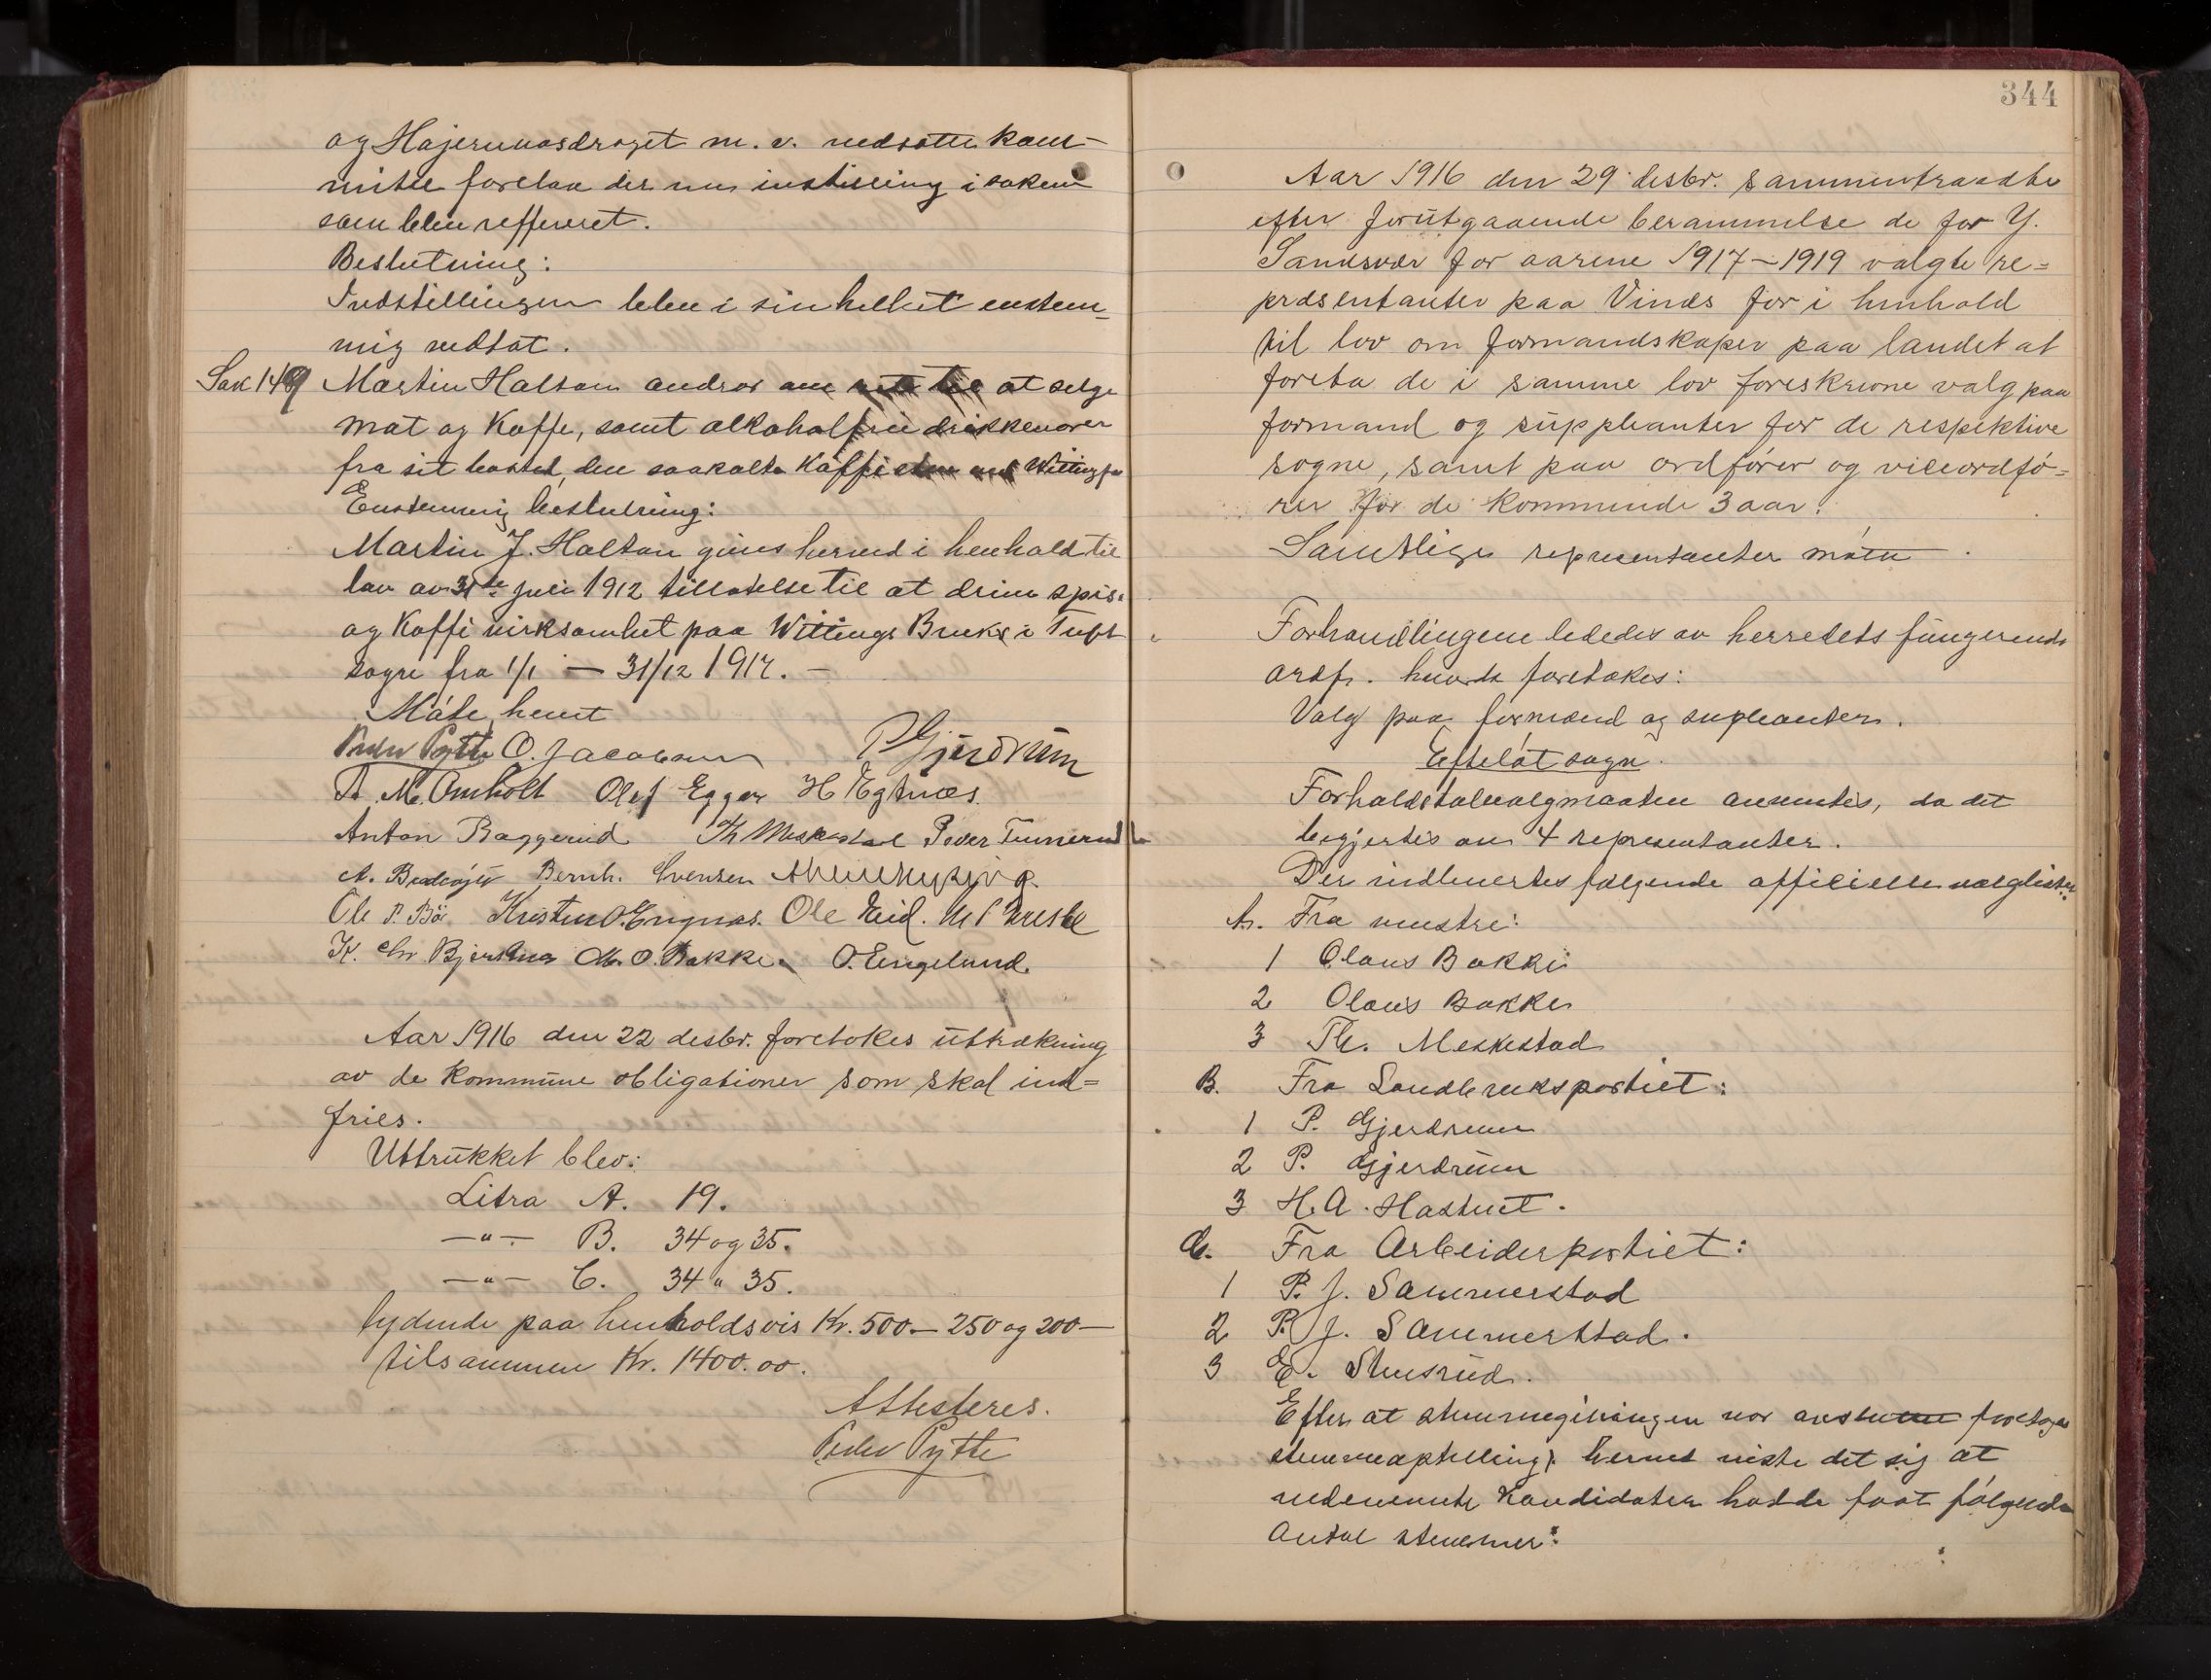 og Hajerenvasdraget m. v. nedsatte kom-
mitee forelaa der nu instilling i saken
som blev reffereret.
Beslutning:
Indstillingen blev i sin helhet enstem-
mig vedtat.
Sak 149 Martin Haltan andrar om at selge
mat og Kaffe, samt alkoholfrie drikkevarer
fra sit bosted, den saakalte Kaffi
Enstemmig beslutning:
Martin J. Haltan gives herved i henhold til
lov av 31te juli 1912 tillatelse til at drive spise
og Kaffi virksomhet paa Wittings Bruks i Tuft
sogn fra 1/1 — 31/12 1917. —
Møte hevet
Peder Pytte O. Jacobsen P Gjerdrum
T. M. Omholt Olaf Eggar H Egtnæs.
Anton Baggerud Th Meskestad Peder Tinnerud
A. Bernh. Evensen
Ole P. Bø. Kristen O. Engnæs. Ole Eid.
K. Chr Bjerknes M. O. Bakke. O. Engelund.
Aar 1916 den 22 desbr. foretokes uttrækning
av de kommune obligationer som skal ind=
fries.
Uttrukket blev:
Litra A. 19.
—"— B. 34 og 35.
—"— C. 34 " 35.
lydende paa henholdsvis Kr. 500.— 250 og 200—
tilsammen Kr. 1400.00.
Attesteres.
Peder Pytte
344
Aar 1916 den 29 desbr. sammentraadte
efter forutgaaende berammelse de for Y.
Sandsvær for aarene 1917—1919 valgte re=
præsentanter paa Vinds for i henhold
til lov om formandskaper paa landet at
foreta de i samme lov foreskrevne valg paa
formand og suppleanter for de respektive
sogne, samt paa ordfører og viceordfø=
rer for de kommende 3 aar.
Samtlige representanter møtte.
Forhandlingene lededes av herredets fungerende
ordf. hvorda foretokes:
Valg paa formænd og supleanter.
Efteløt sogn.
Forholdstalvalgmaaten anventes, da det
begjertes av 4 representanter.
Der indlevertes følgende officielle valglister.
A. Fra venstre:
1 Olaus Bakke
2 Olaus Bakke
3 Th. Meskestad
B. Fra Landbrukspartiet:
1 P. Gjerdrum
2 P. Gjerdrum
3 H. A. Hastvet.
C. Fra Arbeiderpartiet:
1 P. J. Sammerstad
2 P. J. Sammerstad.
3 E. Stensrud.
Efter at stemmegivningen var avsluttet foretoges
stemmeoptelling. Herved viste det sig at
nedennevnte Kandidater hadde faat følgende
Antal stemmer: